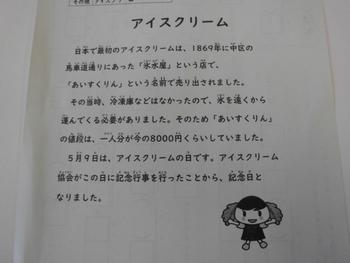 その他 アイスクリーム
アイスクリーム
日本で最初のアイスクリームは、1869年に中区の
馬車道通りにあった「氷水屋」という店で、
「あいすくりん」という名前で売り出されました。
その当時、冷凍庫などはなかったので、氷を遠くから
運んでくる必要がありました。そのため「あいすくりん」
の値段は、一人分が今の8000円くらいしていました。
5月9日は、アイスクリームの日です。アイスクリーム
協会がこの日に記念行事を行ったことから、記念日と
なりました。